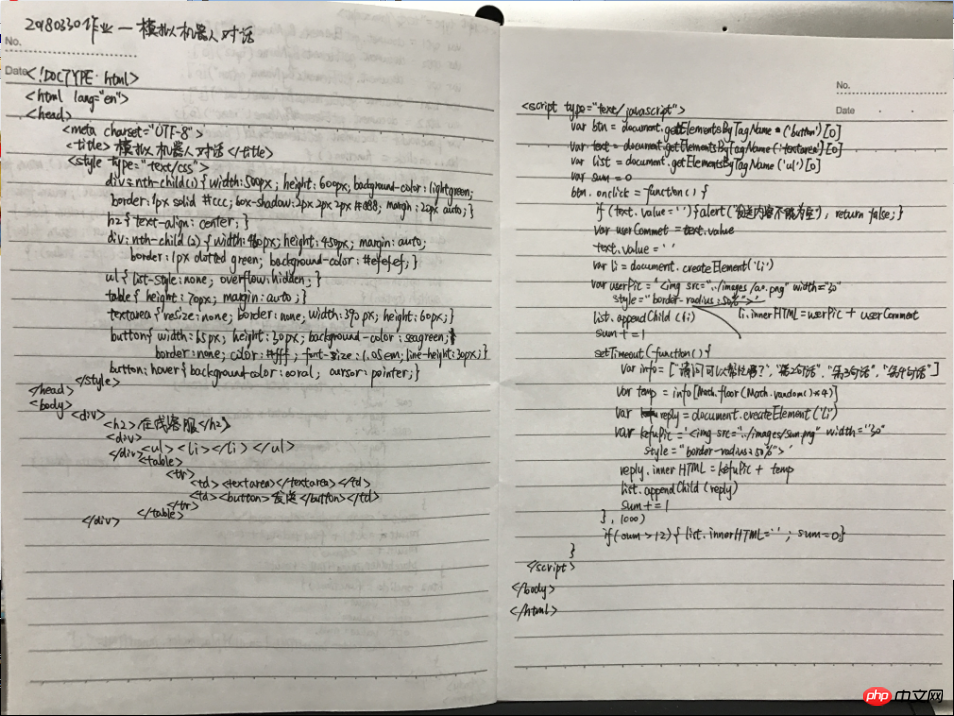 2980330作业一模拟人机器人对话
No.
Date
<!DOCTYPE html>
<html lang="en">
<head>
<meta charset="UTF-8">
<title>模拟人机器人对话</title>
<style type="text/css">
div:nth-child(1){width:500px; height:600px; background-color:lightgreen;
border:1px solid #ccc; box-shadow:2px 2px 2px #888; margin:20px auto;}
h2{text-align: center;}
div:nth-child(2){width:480px; height:450px; margin:auto;
border:1px dotted green; background-color:#efefef;}
ul{list-style:none; overflow:hidden;}
table{height:70px; margin:auto;}
textarea{resize:none; border:none; width:390px; height:60px;}
button{width:65px; height:30px; background-color:seagreen;
border:none; color:#fff; font-size:1.05em; line-height:30px;}
button:hover{background-color:coral; cursor:pointer;}
</style>
</head>
<body>
<div>
<h2>在线客服</h2>
<div>
<ul><li></li></ul>
</div>
<table>
<tr>
<td><textarea></textarea></td>
<td><button>发送</button></td>
</tr>
</table>
</div>
No.
Date
<script type="text/javascript">
var btn = document.getElementsByTagName('button')[0]
var text = document.getElementsByTagName('textarea')[0]
var list = document.getElementsByTagName('ul')[0]
var sum = 0
btn.onclick = function(){
if(text.value=''){alert('发送内容不能为空'), return false;}
var userCommet = text.value
text.value = ''
var li = document.createElement('li')
var userPic = '<img src="../images/aa.png" width="30"
style="border-radius:50%">'
list.appendChild(li) li.innerHTML=userPic + userComment
sum += 1
setTimeout(function(){
var info = ['请问可以帮忙嘛?', '第2句话', '第3句话', '第4句话']
var temp = info[Math.floor(Math.random()*4)]
var reply = document.createElement('li')
var kefuPic = '<img src="../images/sun.png" width="30"
style="border-radius:50%">'
reply.innerHTML = kefuPic + temp
list.appendChild(reply)
sum += 1
}, 1000)
if(sum>12){list.innerHTML=''; sum=0}
}
</script>
</body>
</html>
php中文网